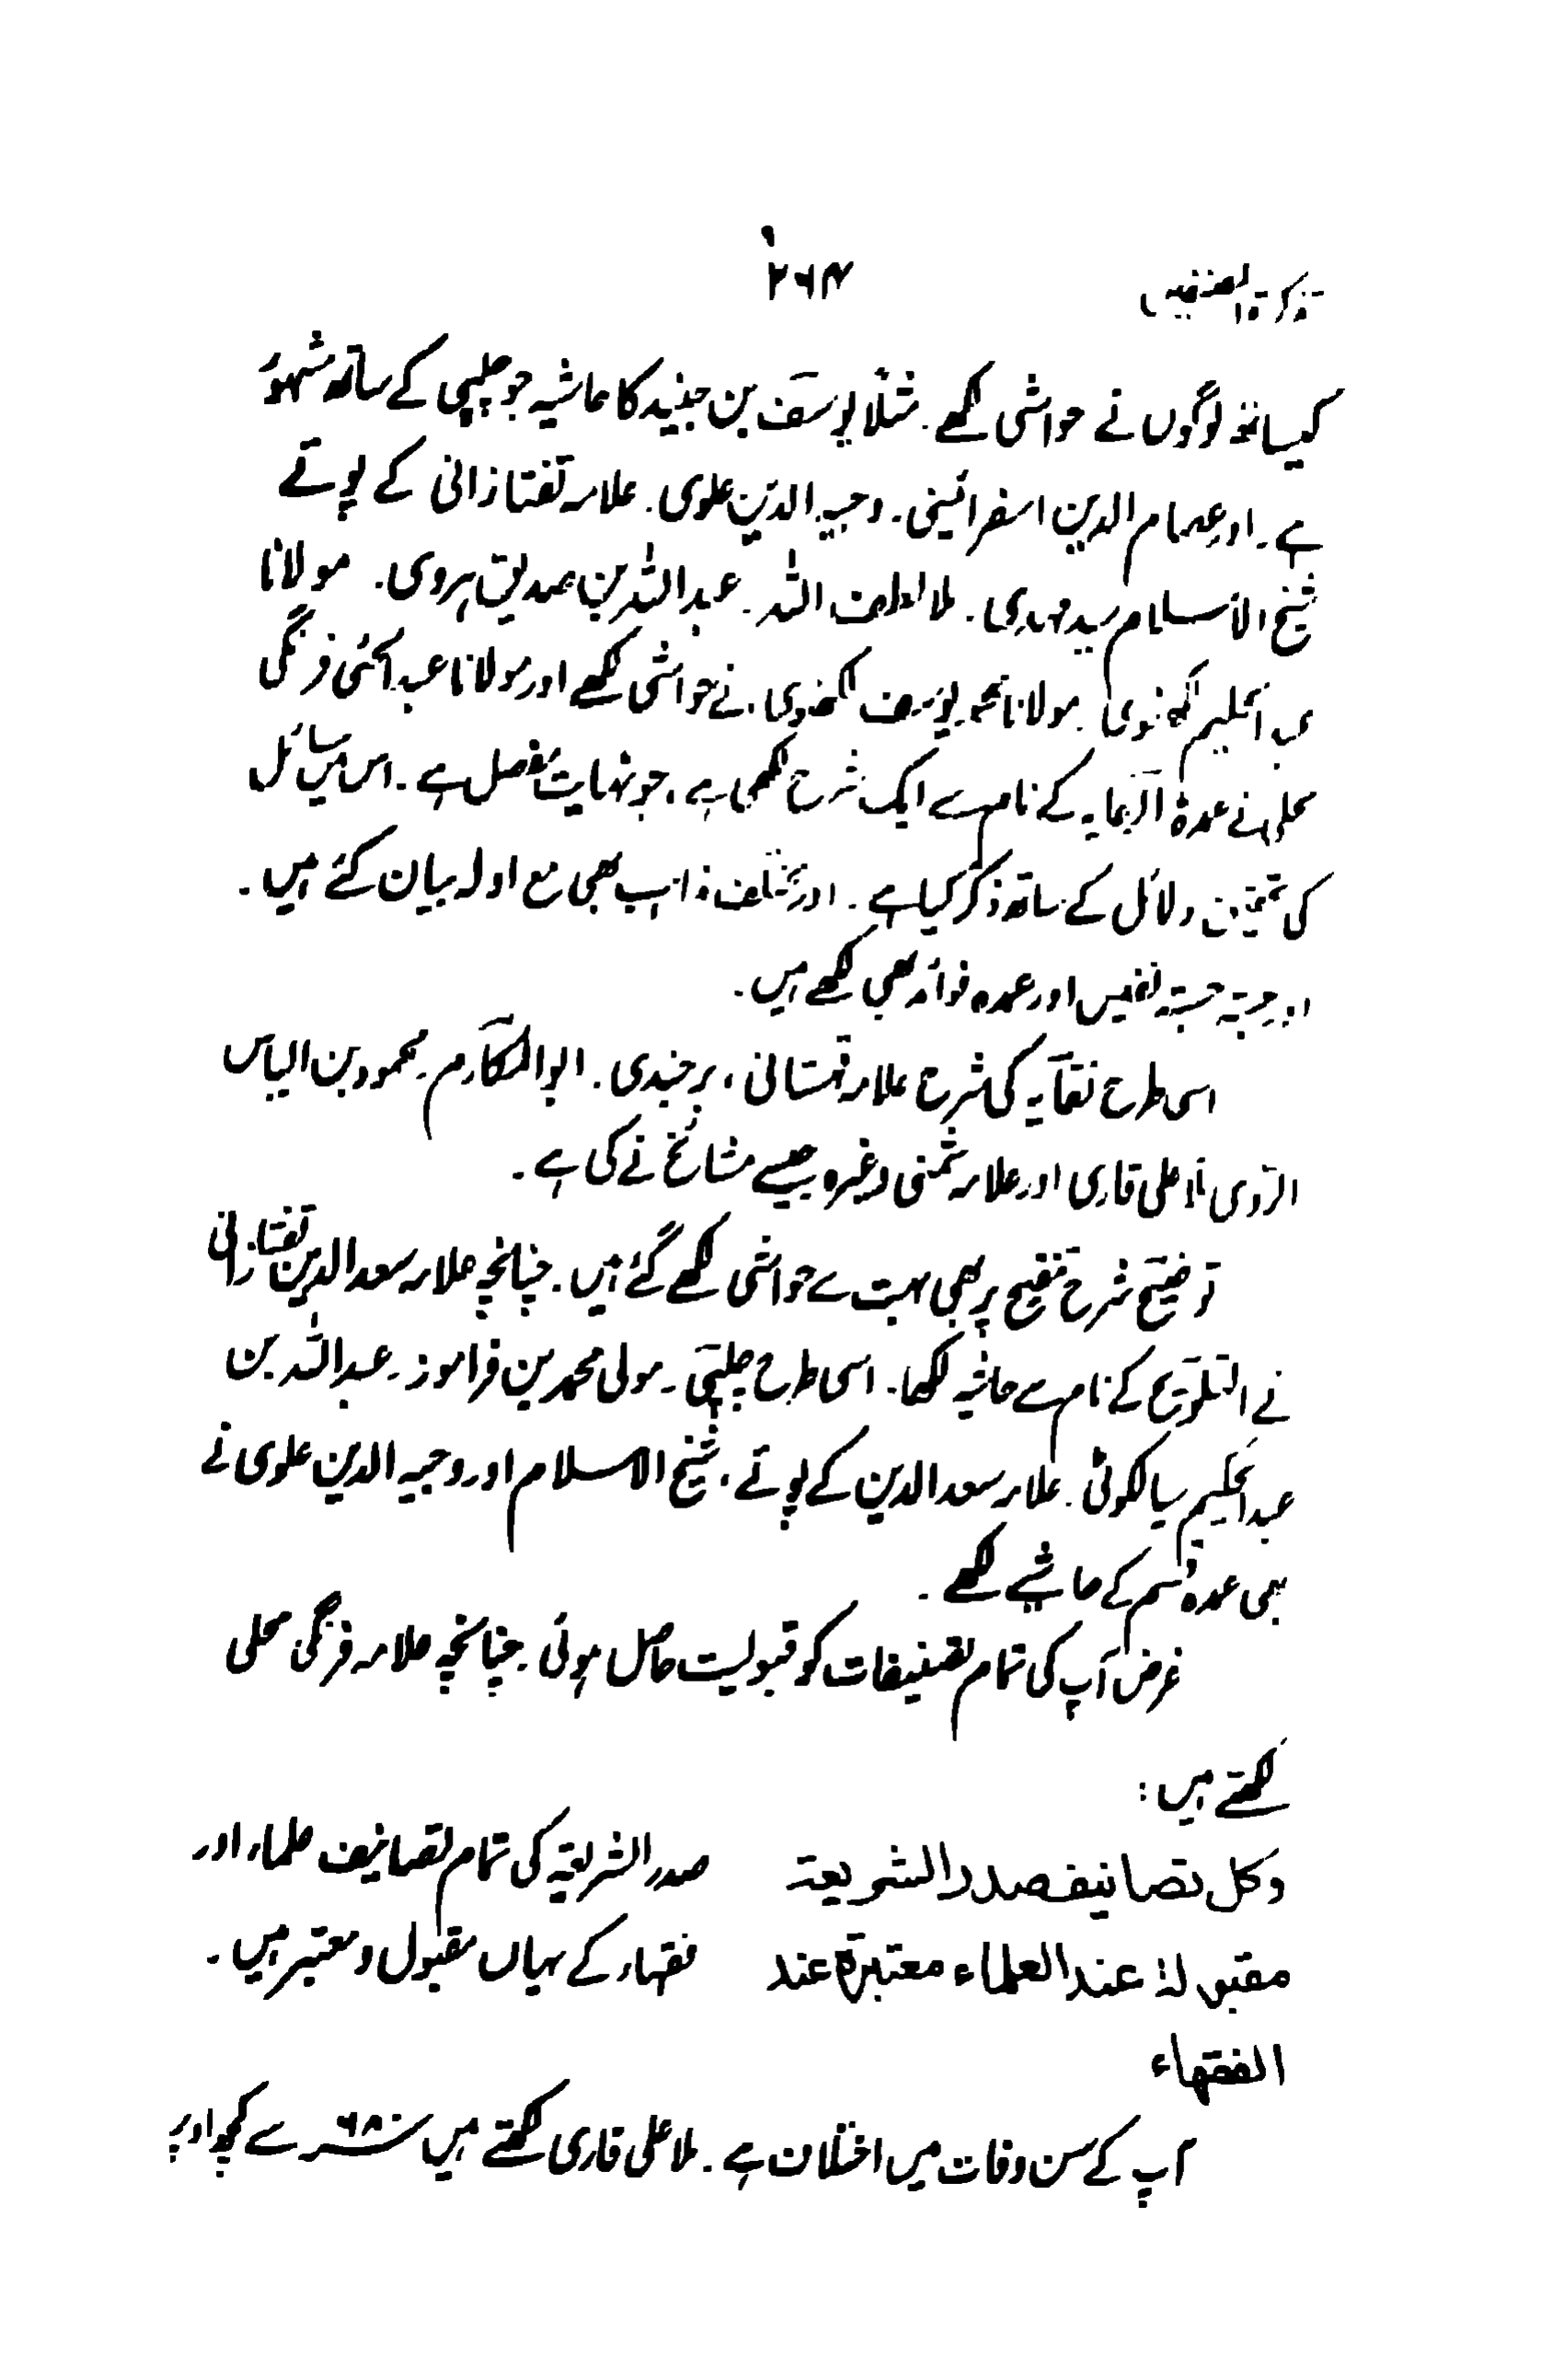 تذکرۃ المصنفین
۲۶۴
کیساتھ لوگوں نے حواشی لکھے۔ مثلاً یوسف بن جنید کا حاشیہ جو چلپی کے ساتھ مشہور
ہے۔ اور عصام الدین اسفرائینی۔ وجیہ الدین علوی۔ علامہ تفتازانی کے پوتے
شیخ الاسلام سید مہدی۔ ملا لطف اللہ۔ عبداللہ بن صدیق ہروی۔ مولانا
عبدالحلیم لکھنوی۔ مولانا محمد یوسف لکھنوی، نے حواشی لکھے اور مولانا عبدالحئی فرنگی
محلی نے عمدۃ الرعایہ کے نام سے ایک شرح لکھی ہے، جو نہایت مفصل ہے۔ اس میں مسائل
کی تحقیق دلائل کے ساتھ ذکر کیا ہے۔ اور مختلف مذاہب بھی مع ادلہ بیان کئے ہیں۔
اور جستہ جستہ نفیس اور عمدہ فوائد بھی لکھے ہیں۔
اسی طرح نقایہ کی شرح علامہ قہستانی، برجندی۔ ابوالمکارم۔ محمود بن الیاس
الرومی ملا علی قاری اور علامہ شمنی وغیرہ جیسے مشائخ نے کی ہے۔
توضیح شرح تنقیح پر بھی بہت سے حواشی لکھے گئے ہیں۔ چنانچہ علامہ سعد الدین تفتازانی
نے التلویح کے نام سے حاشیہ لکھا۔ اسی طرح چلپی۔ مولی محمد بن فراموز۔ عبداللہ بن
عبدالحکیم سیالکوٹی۔ علامہ سعد الدین کے پوتے، شیخ الاسلام اور وجیہ الدین علوی نے
بھی عمدہ قسم کے حاشیے لکھے۔
غرض آپ کی تمام تصنیفات کو قبولیت حاصل ہوئی۔ چنانچہ علامہ فرنگی محلی
لکھتے ہیں:
وکل تصانیف صدر الشریعۃ صدر الشریعۃ کی تمام تصانیف علماء اور
مقبولۃ عند العلماء معتبرۃ عند فقہاء کے یہاں مقبول ومعتبر ہیں۔
الفقہاء
آپ کے سن وفات میں اختلاف ہے۔ ملا علی قاری لکھتے ہیں ۶۸۰ سے کچھ اوپر